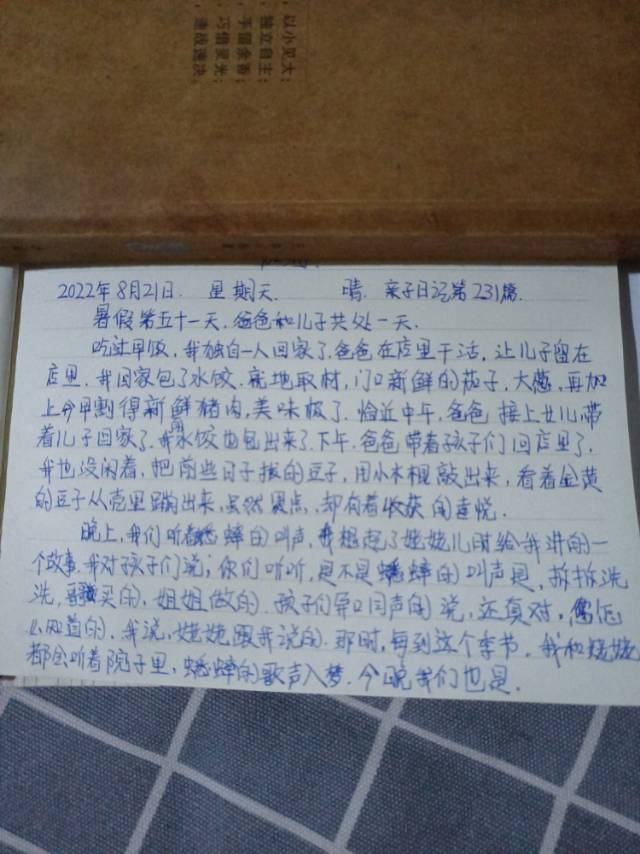 以小见大；
独立自主；
手留余香；
巧借灵光；
速战速决。
2022年8月21日. 星期天. 晴. 亲子日记第231篇.
暑假第五十一天,爸爸和儿子共处一天.
吃过早饭,我独自一人回家了.爸爸在店里干活,让儿子留在
店里.我回家包了水饺.就地取材,门口新鲜的茄子,大葱,再加
上今早割得新鲜猪肉,美味极了.恰近中午,爸爸接上女儿,带
着儿子回家了.我水饺也包出来了.下午.爸爸带着孩子们回店里了,
我也没闲着,把前些日子拔的豆子,用小木棍敲出来,看着金黄
的豆子从壳里蹦出来,虽然累点,却有着收获的喜悦.
晚上,我们听着蟋蟀的叫声,我想起了姥姥儿时给我讲的一
个故事.我对孩子们说;你们听听,是不是蟋蟀的叫声是,拆拆洗
洗,买的,姐姐做的.孩子们异口同声的说,还真对,俺怎
么知道的,我说,姥姥跟我说的.那时,每到这个季节,我和姥姥
都会听着院子里,蟋蟀的歌声入梦.今晚我们也是.